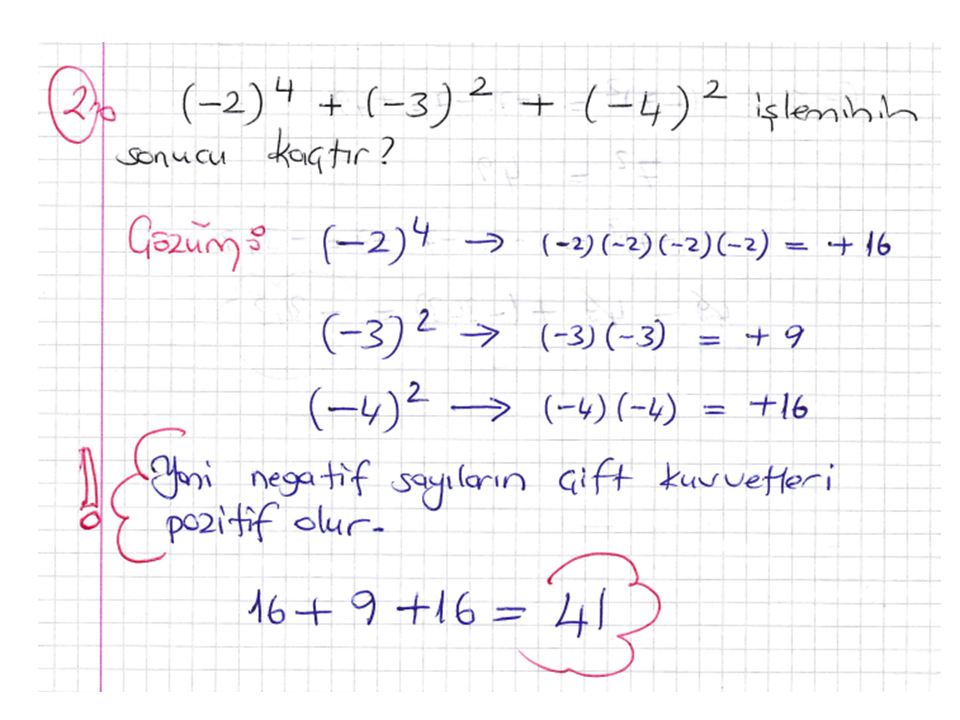 2) (-2)⁴ + (-3)² + (-4)² işleminin
sonucu kaçtır?
Çözüm: (-2)⁴ → (-2)(-2)(-2)(-2) = +16
(-3)² → (-3)(-3) = +9
(-4)² → (-4)(-4) = +16
! Yani negatif sayıların çift kuvvetleri
pozitif olur.
16 + 9 + 16 = 41